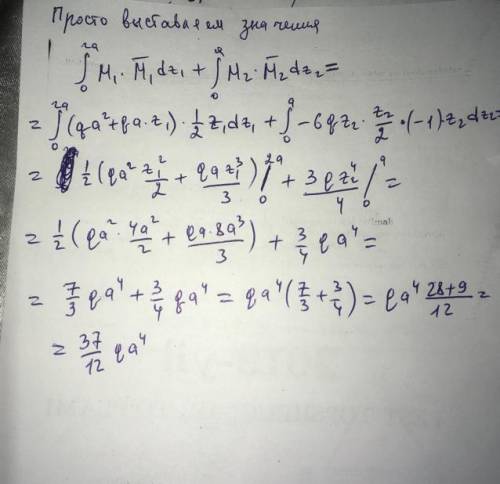 Просто выставляем значения
∫₀²ᵃ M₁ · M̅₁ dz₁ + ∫₀ᵃ M₂ · M̅₂ dz₂ =
= ∫₀²ᵃ (qa² + qa · z₁) · 1/2 z₁ dz₁ + ∫₀ᵃ -6qz₂ · z₂/2 · (-1) z₂ dz₂ =
= 1/2 (qa² z₁²/2 + qa z₁³/3) |₀²ᵃ + 3qz₂⁴/4 |₀ᵃ =
= 1/2 (qa² · 4a²/2 + qa · 8a³/3) + 3/4 qa⁴ =
= 7/3 qa⁴ + 3/4 qa⁴ = qa⁴ (7/3 + 3/4) = qa⁴ 28+9/12 =
= 37/12 qa⁴